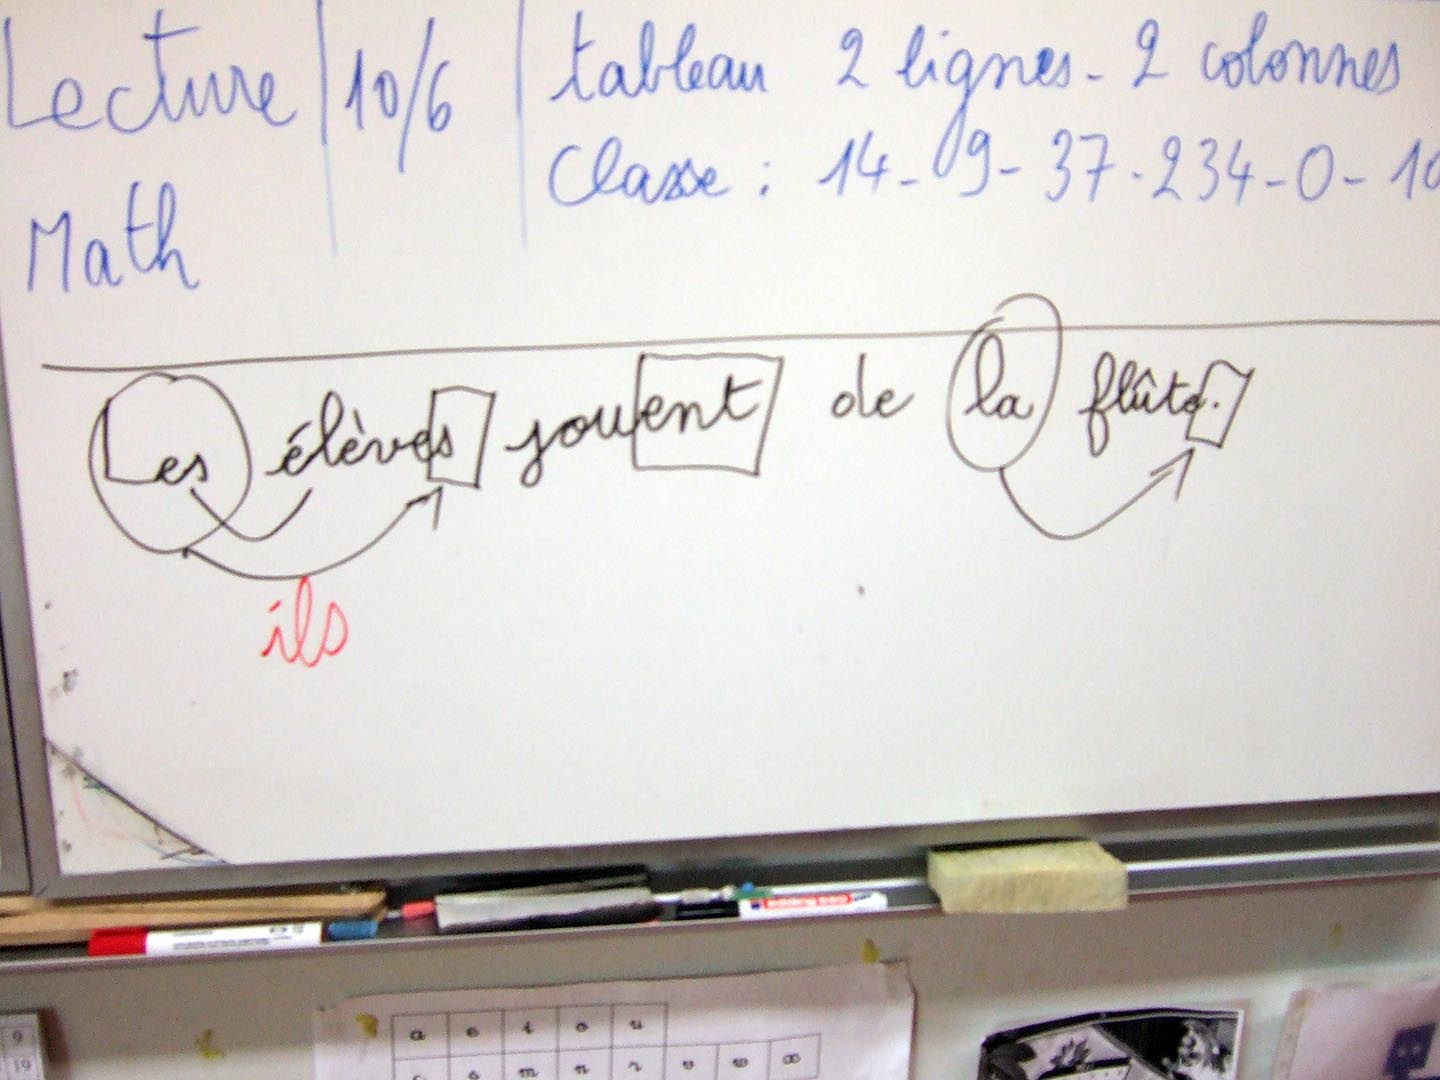 Lecture 10/6 tableau 2 lignes - 2 colonnes
Classe : 14 - 09 - 37 - 234 - 0 - 10
Math
Les élèves jouent de la flûte.
ils
a e i o u
m n r v w x
9
19